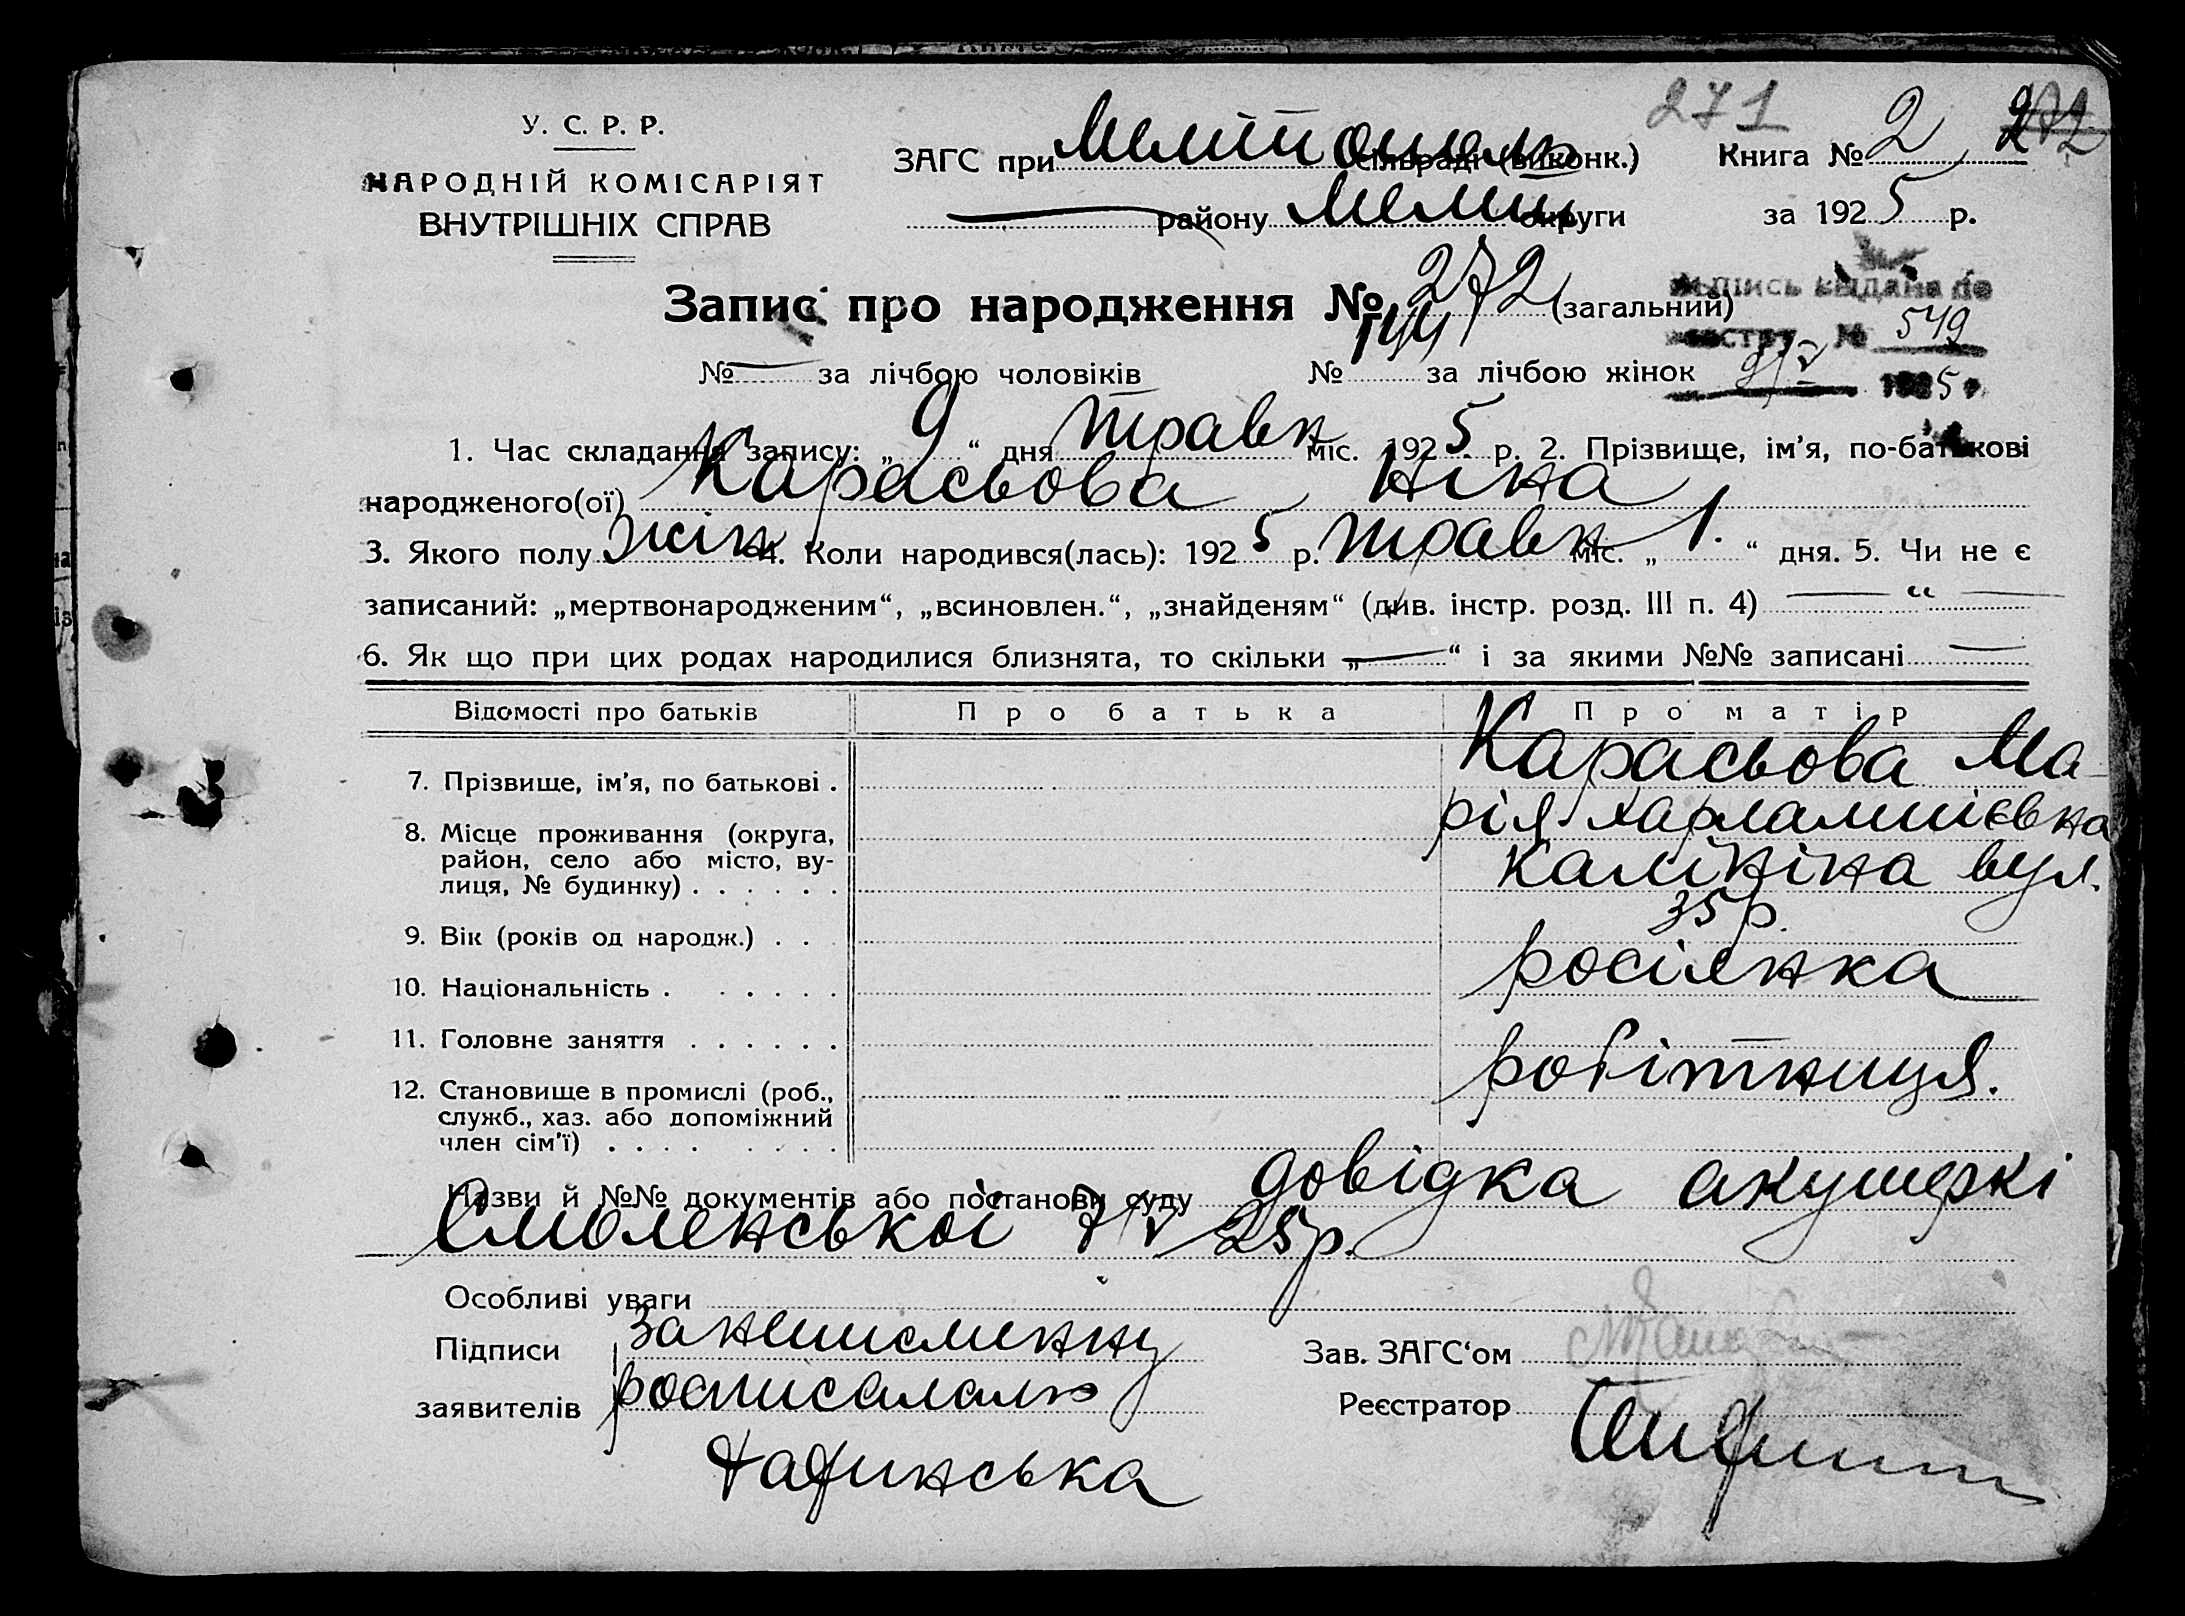 271
У. С. Р. Р.
НАРОДНІЙ КОМІСАРІЯТ
ВНУТРІШНІХ СПРАВ
ЗАГС при Мелітополь сільраді (виконк.) Книга № 2 272
району Меліт округи за 1925 р.
Запис про народження № 272 (загальний)
Выпись выдана по
реестру № 549
9/V 1925 г.
№ — за лічбою чоловіків № 144 за лічбою жінок
1. Час складання запису: „9“ дня травн міс. 1925 р. 2. Прізвище, ім’я, по-батькові
народженого(ої) Карасьова Ніна
3. Якого полу жін 4. Коли народився(лась): 1925 р. травн міс. „1.“ дня. 5. Чи не є
записаний: „мертвонародженим“, „всиновлен.“, „знайденям“ (див. інстр. розд. III п. 4) — “ —
6. Як що при цих родах народилися близнята, то скільки „—“ і за якими №№ записані —
Відомості про батьків Про батька Про матір
7. Прізвище, ім’я, по батькові . Карасьова Ма-
рія Харлампієвна
8. Місце проживання (округа,
район, село або місто, ву-
лиця, № будинку) . . . . . . Калініна вул.
9. Вік (років од народж.) . . . 35 р.
10. Національність . . . . . . росіянка
11. Головне заняття . . . . . . робітниця.
12. Становище в промислі (роб.,
служб., хаз. або допоміжний
член сім’ї) . . . . . . . .
Назви й №№ документів або постанови суду довідка акушеркі
Смоленської 7/V 25 р.
Особливі уваги
Підписи за неписменну Зав. ЗАГС‘ом
заявителів росписалась Реєстратор